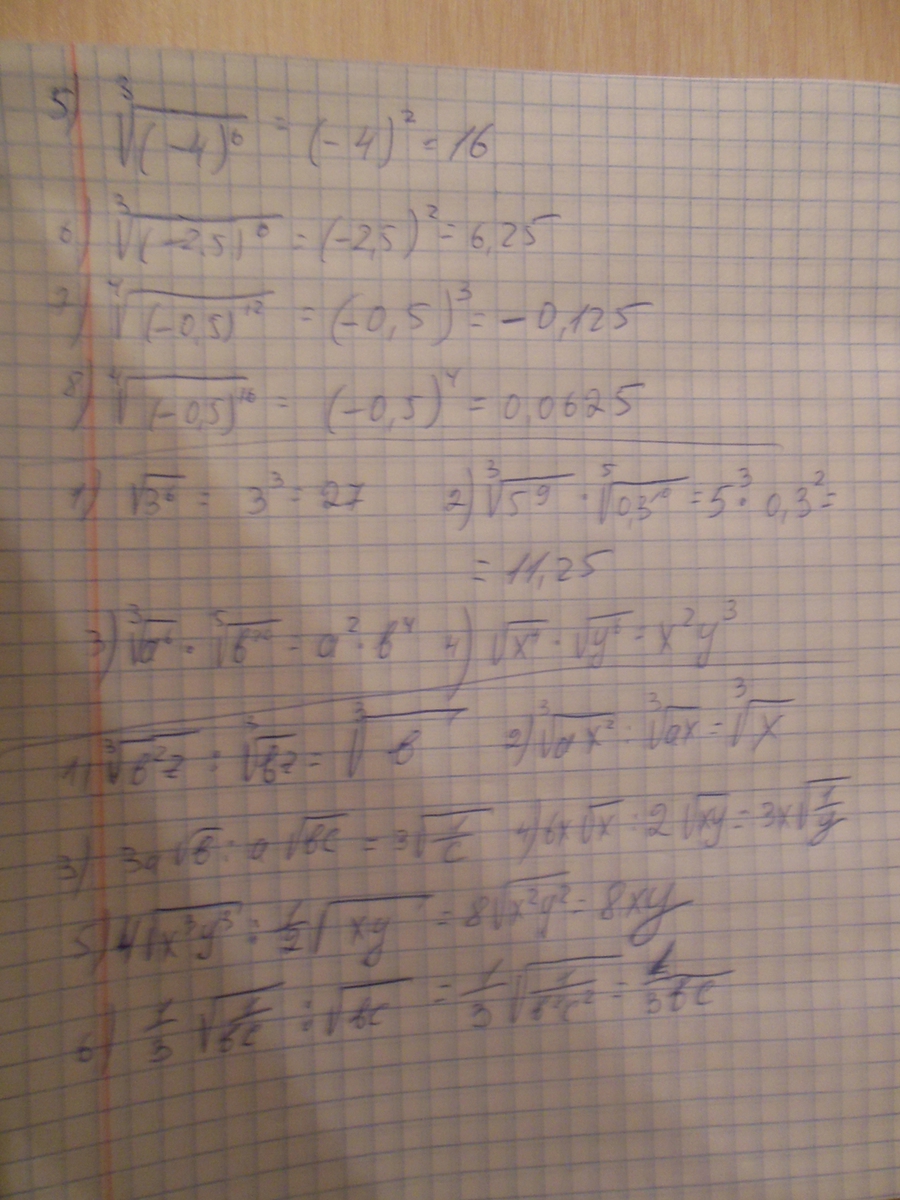 5) ∛(-4)⁶ = (-4)² = 16
6) ∛(-2,5)⁶ = (-2,5)² = 6,25
7) ∜(-0,5)¹² = (-0,5)³ = -0,125
8) ∜(-0,5)¹⁶ = (-0,5)⁴ = 0,0625
1) √3⁶ = 3³ = 27 2) ∛5⁹ · ⁵√0,3¹⁰ = 5³ · 0,3² =
= 11,25
3) ∛a⁶ · ⁵√b²⁰ = a² · b⁴ 4) √x⁴ · √y⁶ = x²y³
1) ∛b²z : ∛bz = ∛b 2) ∛ax² : ∛ax = ∛x
3) 3a√b : a√bc = 3√(1/c) 4) 6x√x : 2√xy = 3x√(1/y)
5) 4√x³y³ : 1/2√xy = 8√x²y² = 8xy
6) 1/3 √(1/bc) : √bc = 1/3 √(1/b²c²) = 1/3bc